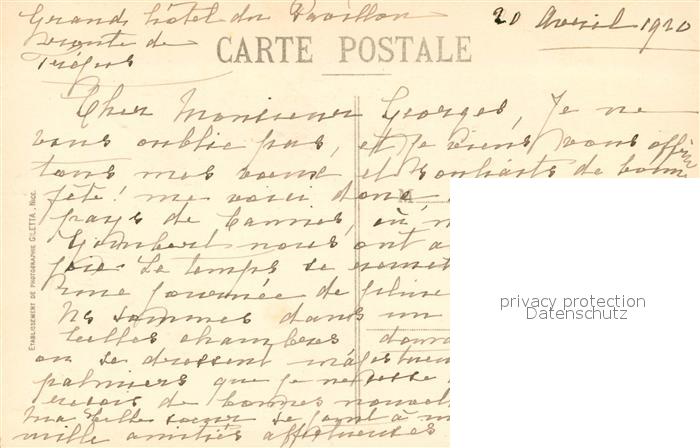 Grand hôtel du Pavillon
20 Avril 1920
route de
Fréjus
CARTE POSTALE
Cher Monsieur Georges, Je ne
vous oublie pas, et je viens vous offrir
tous mes voeux et souhaits de bonne
fête! me voici donc
M
pays de Cannes, où
nous ont a
joie. Le temps se remet
une journée de pluie
Ns sommes dans un
belles chambres donn
où se dressent majestueu
palmiers que je ne cesse
reçois de bonnes nouvel
Ma belle soeur se joint à m
mille amitiés affectueuses
ETABLISSEMENT DE PHOTOGRAPHIE GILETTA, NICE
privacy protection
Datenschutz